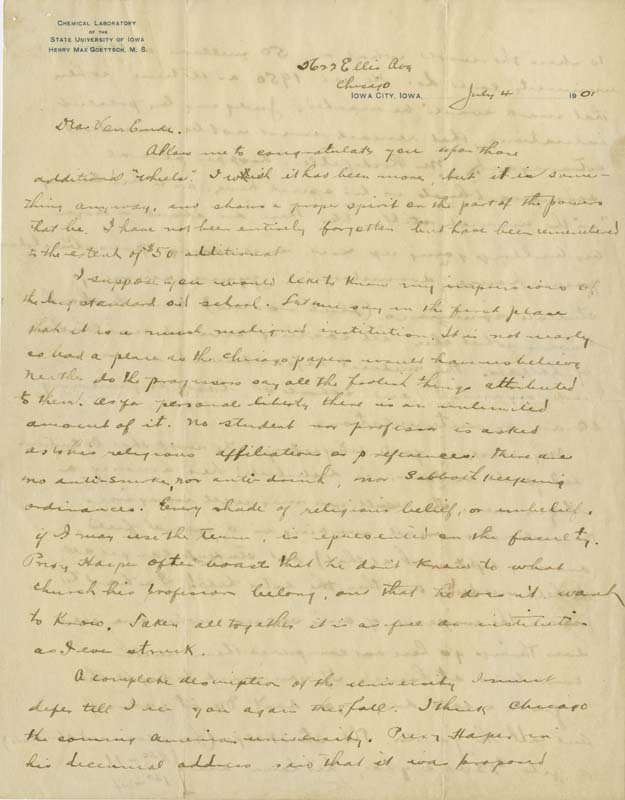 CHEMICAL LABORATORY
OF THE
STATE UNIVERSITY OF IOWA
HENRY MAX GOETTSCH, M. S.
Ellis Ave
Chicago
IOWA CITY, IOWA. July 4 1901
Dear Van Ende.
Allow me to congratulate you upon those
additional "wheels". I wish it had been more, but it is some-
thing anyway, and shows a proper spirit on the part of the powers
that be. I have not been entirely forgotten but have been remembered
to the extent of $50. additional
I suppose you would like to know my impressions of
the big standard oil school. Let me say in the first place
that it is a much maligned institution. It is not nearly
so bad a place as the Chicago papers would have us believe
Neither do the professors say all the foolish things attributed
to them. As for personal liberty there is an unlimited
amount of it. No student nor professor is asked
as to his religious affiliations or preferences. There are
no anti-smoke, nor anti-drink, nor Sabbath keeping
ordinances. Every shade of religious belief, or unbelief,
if I may use the term, is represented on the faculty.
Presy Harper often boasts that he don't know to what
church his professors belong, and that he does n't want
to know. Taken all together it is as free an institution
as I ever struck.
A complete description of the university I must
defer till I see you again this fall. I think Chicago
the coming american university. Presy Harper in
his decennial address said that it was proposed